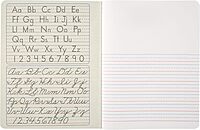 Aa Bb Cc Dd Ee
Ff Gg Hh Ii Jj Kk
Ll Mm Nn Oo Pp
Qq Rr Ss Tt Uu
Vv Ww Xx Yy Zz
1 2 3 4 5 6 7 8 9 0
Aa Bb Cc Dd Ee Ff
Gg Hh Ii Jj Kk
Ll Mm Nn Oo
Pp Qq Rr Ss Tt Uu
Vv Ww Xx Yy Zz
1 2 3 4 5 6 7 8 9 0